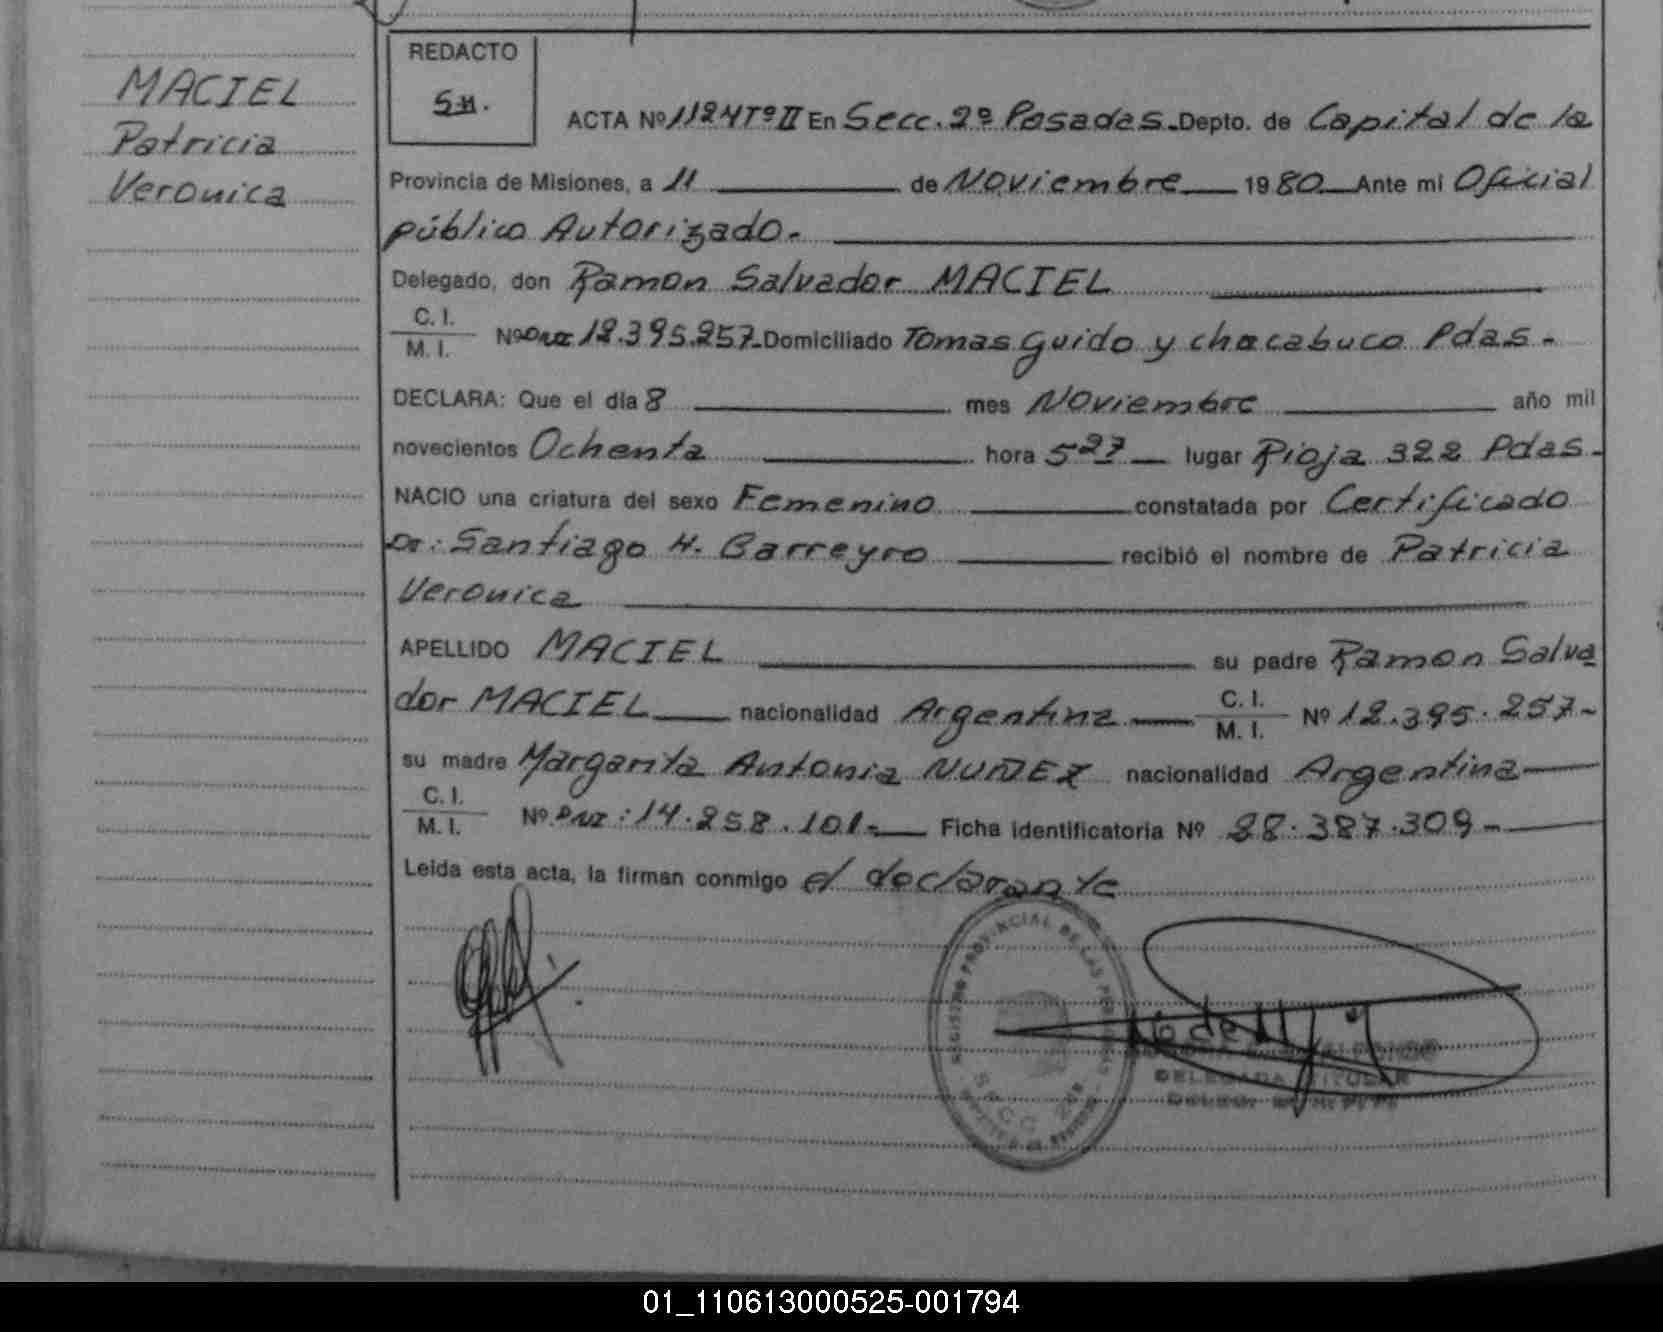 MACIEL
Patricia
Veronica
REDACTO
ACTA Nº 1124 Tº II En Secc. 2º Posadas.- Depto. de Capital de la
Provincia de Misiones, a 11 de Noviembre 1980 Ante mi Oficial
público Autorizado.-
Delegado, don Ramon Salvador MACIEL
C. I.
M. I.
Nº DNI 12.395.257.- Domiciliado Tomas Guido y chacabuco Pdas.-
DECLARA: Que el día 8 mes Noviembre año mil
novecientos Ochenta hora 5 27 lugar Rioja 322 Pdas.-
NACIO una criatura del sexo Femenino constatada por Certificado
Dr: Santiago H. Barreyro recibió el nombre de Patricia
Veronica
APELLIDO MACIEL su padre Ramon Salva
dor MACIEL nacionalidad Argentina C. I.
M. I.
Nº 12.395.257-
su madre Margarita Antonia NUÑEZ nacionalidad Argentina
C. I.
M. I.
Nº DNI: 14.258.101.- Ficha identificatoria Nº 28.387.309-
Leída esta acta, la firman conmigo el declarante
REGISTRO PROVINCIAL DE LAS PERSONAS
SECC. 2ª
DELEGADA TITULAR
01_110613000525-001794